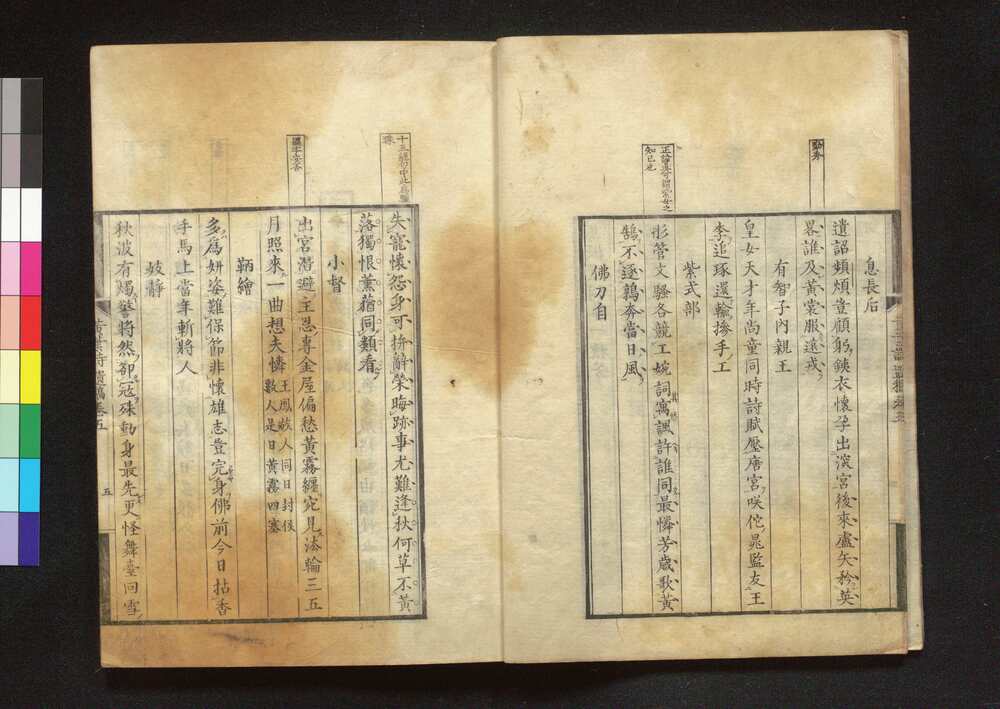 息長后
遺詔頻煩豈顧躬鋏衣懷孕出深宮後來盧矢矜英
畧誰及黃裳服遠戎
有智子內親王
皇女天才年尚童同時詩賦壓唐宮咲佗晁監友王
李追琢還輸摻手工
紫式部
彤管文騷各競工婉詞寓諷許誰同最憐芳歲歌黃
鵠不逐鶉奔當日風
佛刀自
失寵懷怨身可拚辭榮晦跡事尤難逢秋何草不黃
落獨恨薰蕕同類看
小督
出宮潛避主恩專金屋偏愁黃霧纏究見法輪三五
月照來一曲想夫憐 王鳳故人同日封侯
數人是日黃霧四塞
鞆繪
多為妍姿難保節非懷雄志豈完身佛前今日拈香
手馬上當年斬將人
妓靜
秋波有燭擎將然卻冠殊動身最先更怪舞臺回雪
黃葉詩遺稿卷五
五